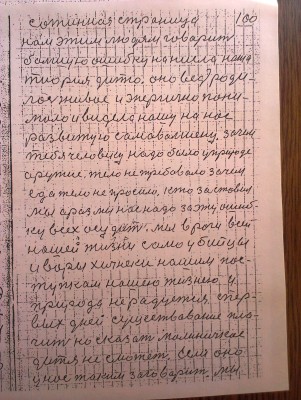 сотенная страница 100
нам этим людям говарит
большую ошибку нанесла наша
теория дитю, оно всё роди-
лось живое и энергично пони-
мало и видело нашу на нас
развитую самоволщену. зачем
тебя человеку надо было у природе
аружие, тело не требовало зачем
еда тело не просило, кто заставил
мы аразмы нас надо за эту ошиб-
ку всех осудит. мы враги всей
нашей жизни само убейцы
и воры хищники нашим пос-
тупкам нашею жизнею и
природа не радуется спер-
вых дней существование пла-
чит но сказат малиничкое
дитя не сможет. если оно
у нас таким заговарит. мы